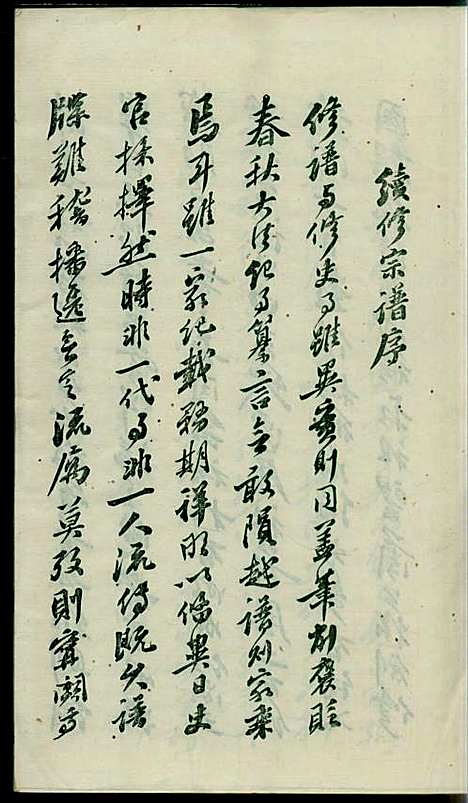 續修宗譜序
修譜与修史事雖異實則同蓋筆削褒貶
春秋大法紀事纂言無敢隕越譜則家乘
焉耳雖一家紀載務期詳明以備異日史
官採擇然時非一代事非一人流傳既久譜
牒難稽播遷無定流寓莫攷則實闕焉